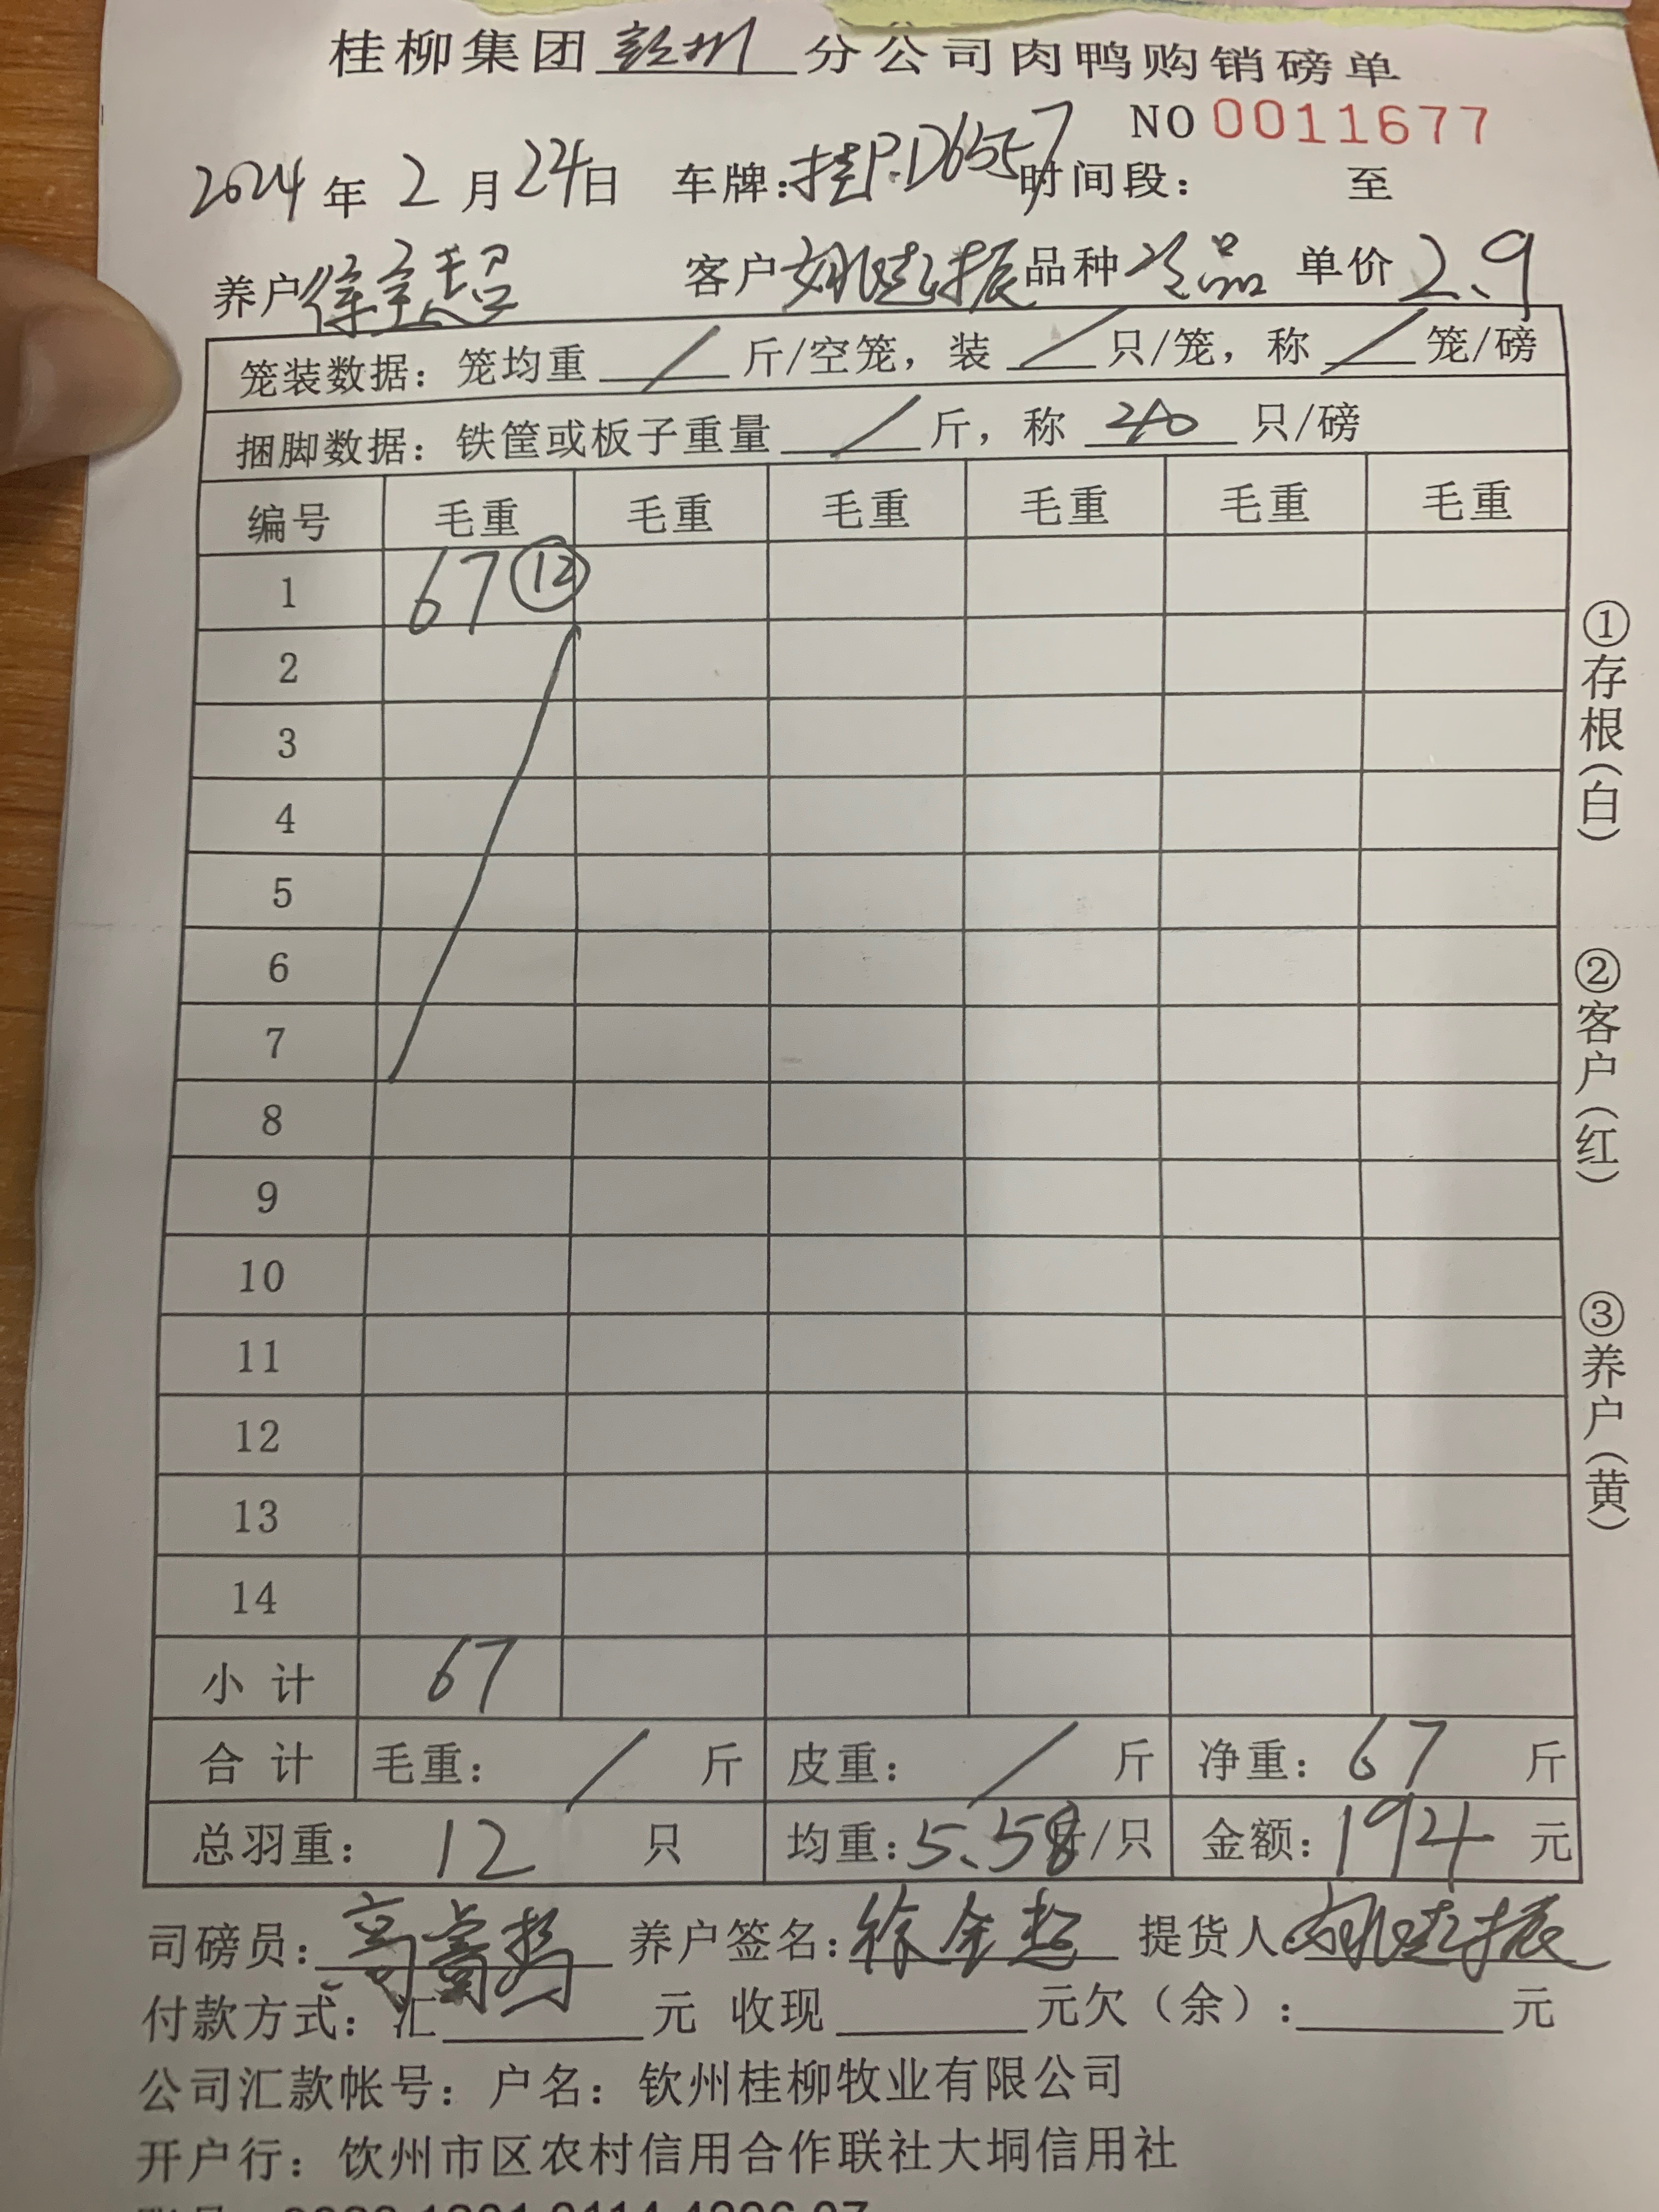 桂柳集团 分公司肉鸭购销磅单
NO 0011677
2024 年 2 月 24 日 车牌: 桂P.D6557 时间段: 至
养户 徐 超 客户 姚 振 品种 次品 单价 2.9
笼装数据: 笼均重 / 斤/空笼, 装 / 只/笼, 称 / 笼/磅
捆脚数据: 铁筐或板子重量 / 斤, 称 只/磅
编号 毛重 毛重 毛重 毛重 毛重 毛重
1 67 ⑫
2
3
4
5
6
7
8
9
10
11
12
13
14
小计 67
合计 毛重: / 斤 皮重: / 斤 净重: 67 斤
总羽重: 12 只 均重: 5.58 斤/只 金额: 194 元
司磅员: 养户签名: 徐 超 提货人 姚 振
付款方式: 汇 元 收现 元欠(余): 元
公司汇款帐号: 户名: 钦州桂柳牧业有限公司
开户行: 钦州市区农村信用合作联社大垌信用社
①存根(白)
②客户(红)
③养户(黄)